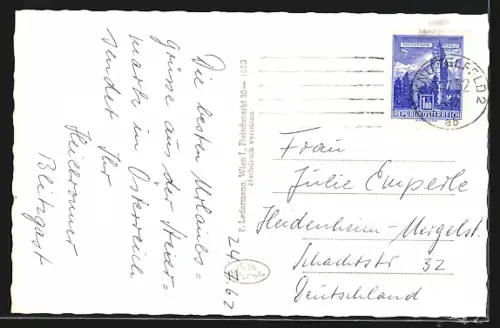 Die besten Urlaubs=
grüsse aus der Steier=
mark in Österreich
sendet Ihr
Heidenheimer
Blitzgast
24.7.62
P. Ledermann, Wien I, Fleischmarkt 20 — 1959
Nachdruck verboten
KNITTELFELD 2
REPUBLIK ÖSTERREICH
Frau
Julie Emperle
Heidenheim-Mergelst.
Schachtstr 32
Deutschland